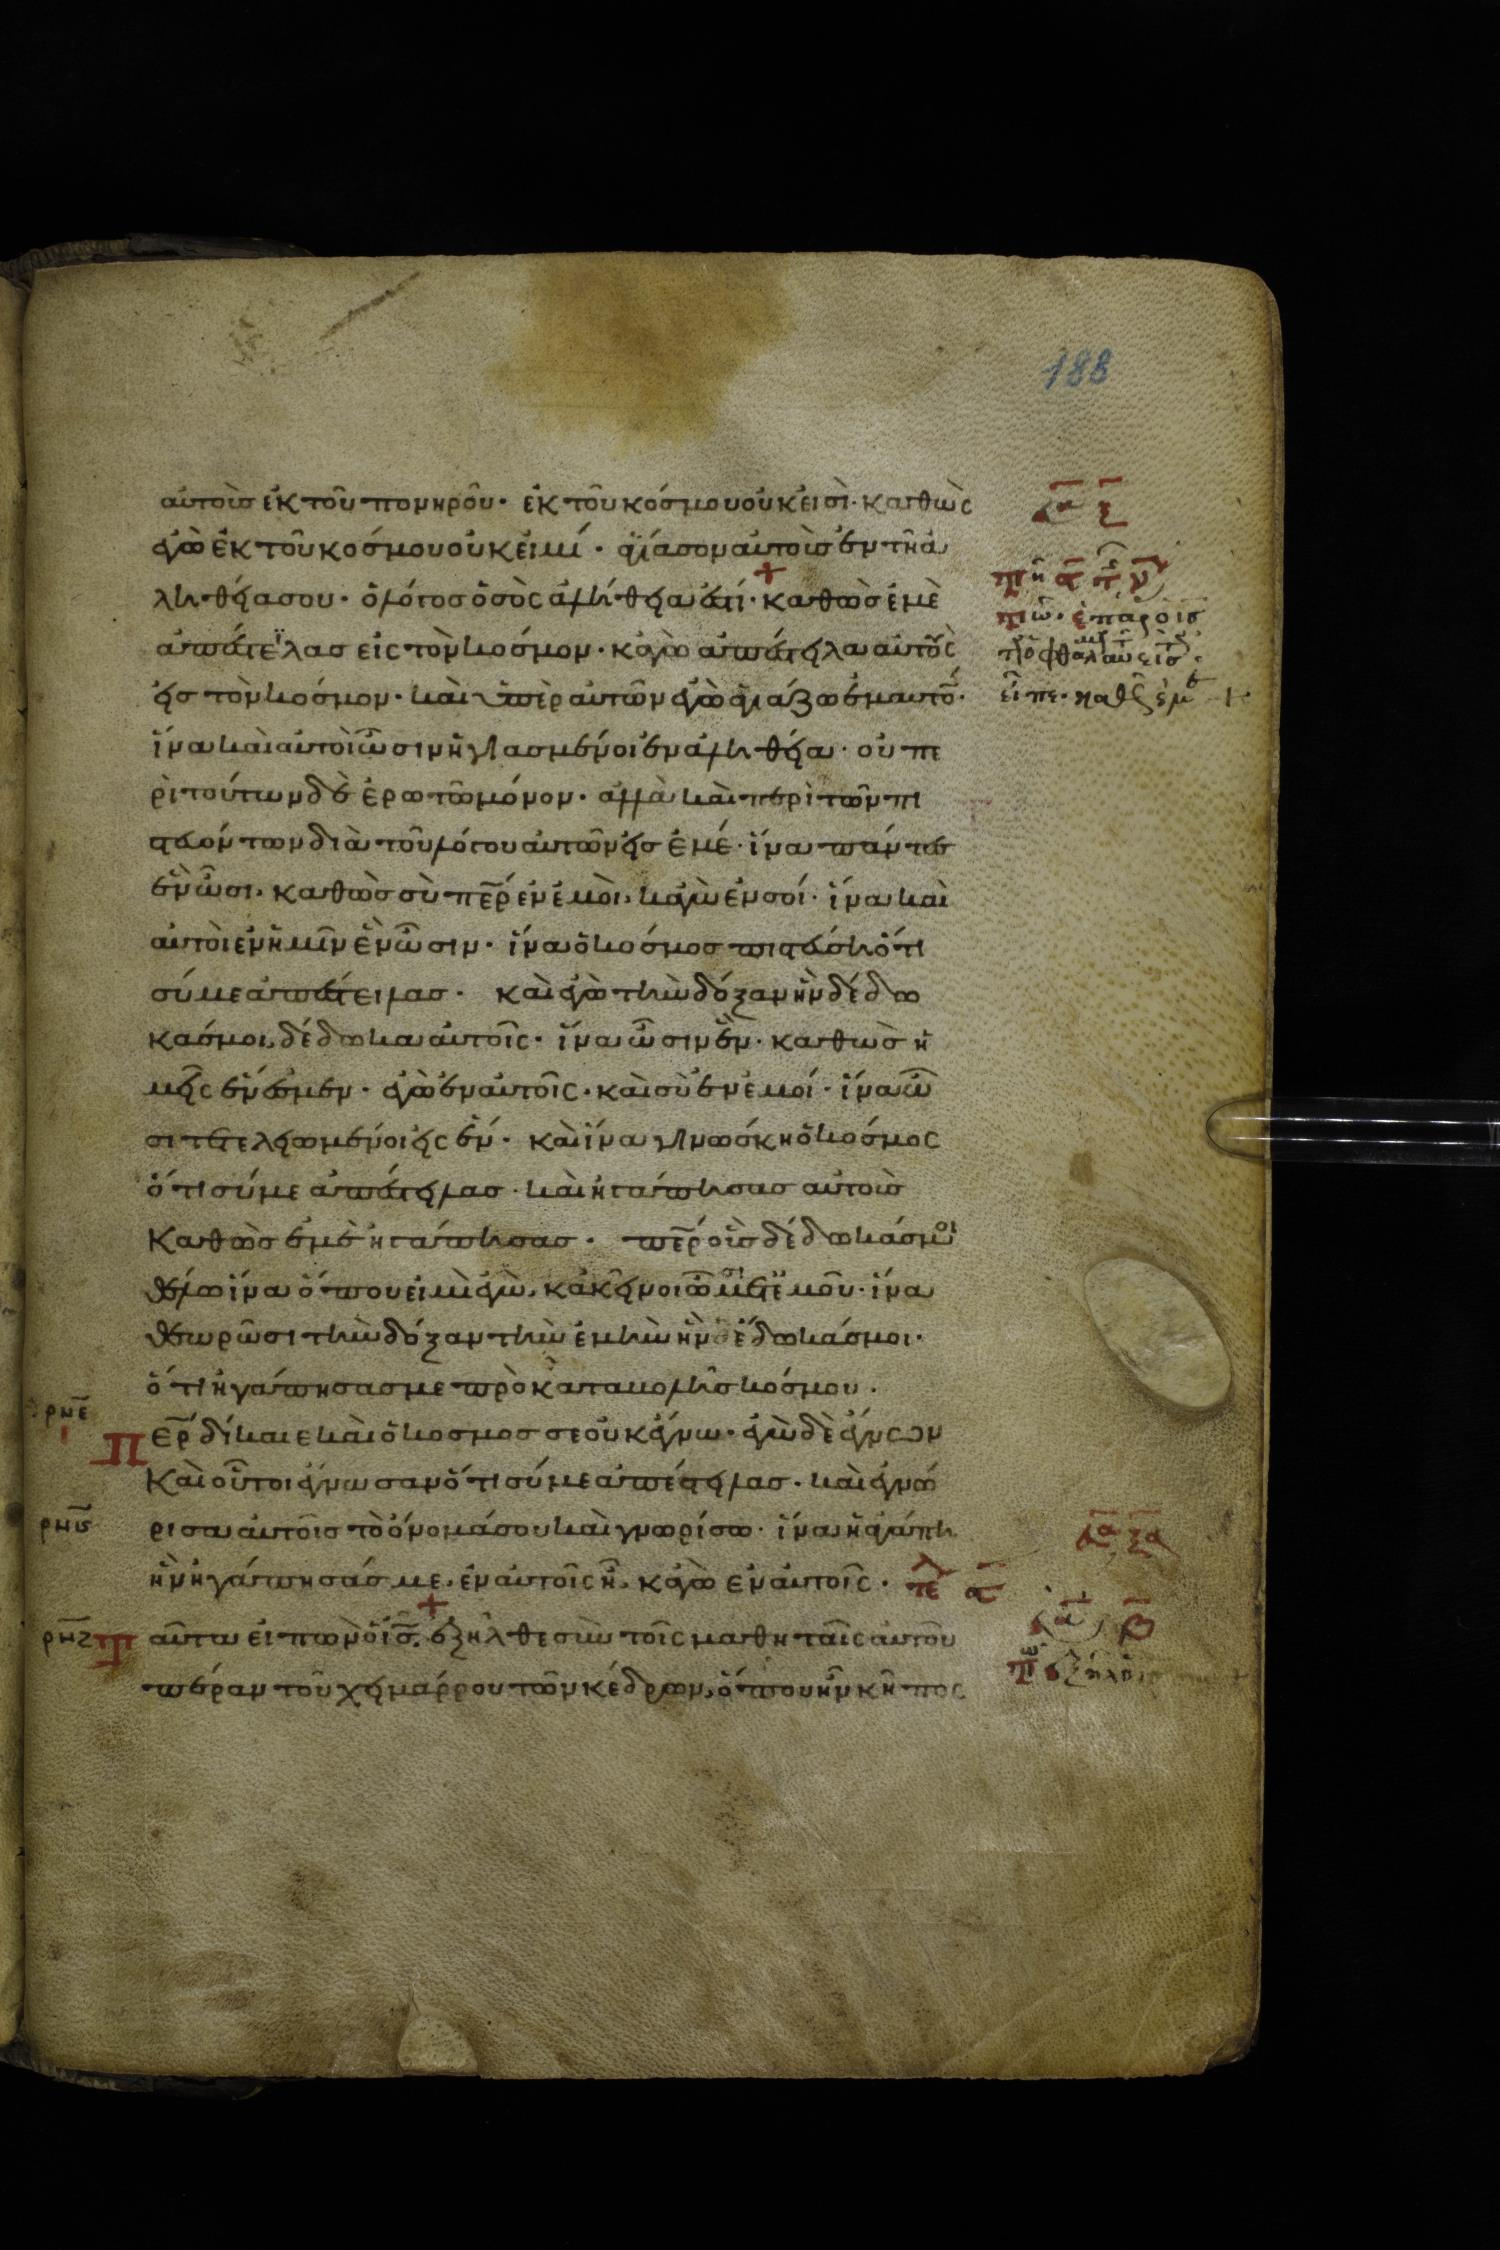 188
αὐτοὺς ἐκ τοῦ πονηροῦ· ἐκ τοῦ κόσμου οὐκ εἰσὶ· καθὼς
ἐγὼ ἐκ τοῦ κόσμου οὐκ εἰμί· ἁγίασον αὐτοὺς ἐν τῇ ἀ
ληθείᾳ σου· ὁ λόγος ὁ σὸς ἀλήθειά ἐστί· καθὼς ἐμὲ
ἀπέστειλας εἰς τὸν κόσμον· κἀγὼ ἀπέστειλα αὐτοὺς
εἰς τὸν κόσμον· καὶ ὑπὲρ αὐτῶν ἐγὼ ἁγιάζω ἐμαυτόν·
ἵνα καὶ αὐτοὶ ὦσιν ἡγιασμένοι ἐν ἀληθείᾳ· οὐ πε
ρὶ τούτων δὲ ἐρωτῶ μόνον· ἀλλὰ καὶ περὶ τῶν πι
στευόντων διὰ τοῦ λόγου αὐτῶν εἰς ἐμέ· ἵνα πάντες
ἓν ὦσι· καθὼς σὺ πε̅ρ ἐν ἐμοὶ, κἀγὼ ἐν σοί· ἵνα καὶ
αὐτοὶ ἐν ἡμῖν ἓν ὦσιν· ἵνα ὁ κόσμος πιστεύσῃ ὅτι
σύ με ἀπέστειλας· καὶ ἐγὼ τὴν δόξαν ἣν δέδω
κάς μοι, δέδωκα αὐτοῖς· ἵνα ὦσιν ἓν· καθὼς ἡ
μεῖς ἕν ἐσμεν· ἐγὼ ἐν αὐτοῖς· καὶ σὺ ἐν ἐμοί· ἵνα ὦ
σι τετελειωμένοι εἰς ἕν· καὶ ἵνα γινώσκῃ ὁ κόσμος
ὅτι σύ με ἀπέστειλας· καὶ ἠγάπησας αὐτοὺς
καθὼς ἐμὲ ἠγάπησας· πε̅ρ οὓς δέδωκάς μοι
θέλω ἵνα ὅπου εἰμὶ ἐγὼ, κἀκεῖνοι ὦσι μετ' ἐμοῦ· ἵνα
θεωρῶσι τὴν δόξαν τὴν ἐμὴν ἣν δέδωκάς μοι·
ὅτι ἠγάπησάς με πρὸ καταβολῆς κόσμου·
ρνε
Πε̅ρ δίκαιε καὶ ὁ κόσμος σε οὐκ ἔγνω· ἐγὼ δέ σε ἔγνων
καὶ οὗτοι ἔγνωσαν ὅτι σύ με ἀπέστειλας· καὶ ἐγνώ
ρισα αὐτοῖς τὸ ὄνομά σου καὶ γνωρίσω· ἵνα ἡ ἀγάπη
ἣν ἠγάπησάς με, ἐν αὐτοῖς ᾖ, κἀγὼ ἐν αὐτοῖς·
Ταῦτα εἰπὼν ὁ ι̅ς̅, ἐξῆλθε σὺν τοῖς μαθηταῖς αὐτοῦ
πέραν τοῦ χειμάρρου τῶν κέδρων, ὅπου ἦν κῆπος